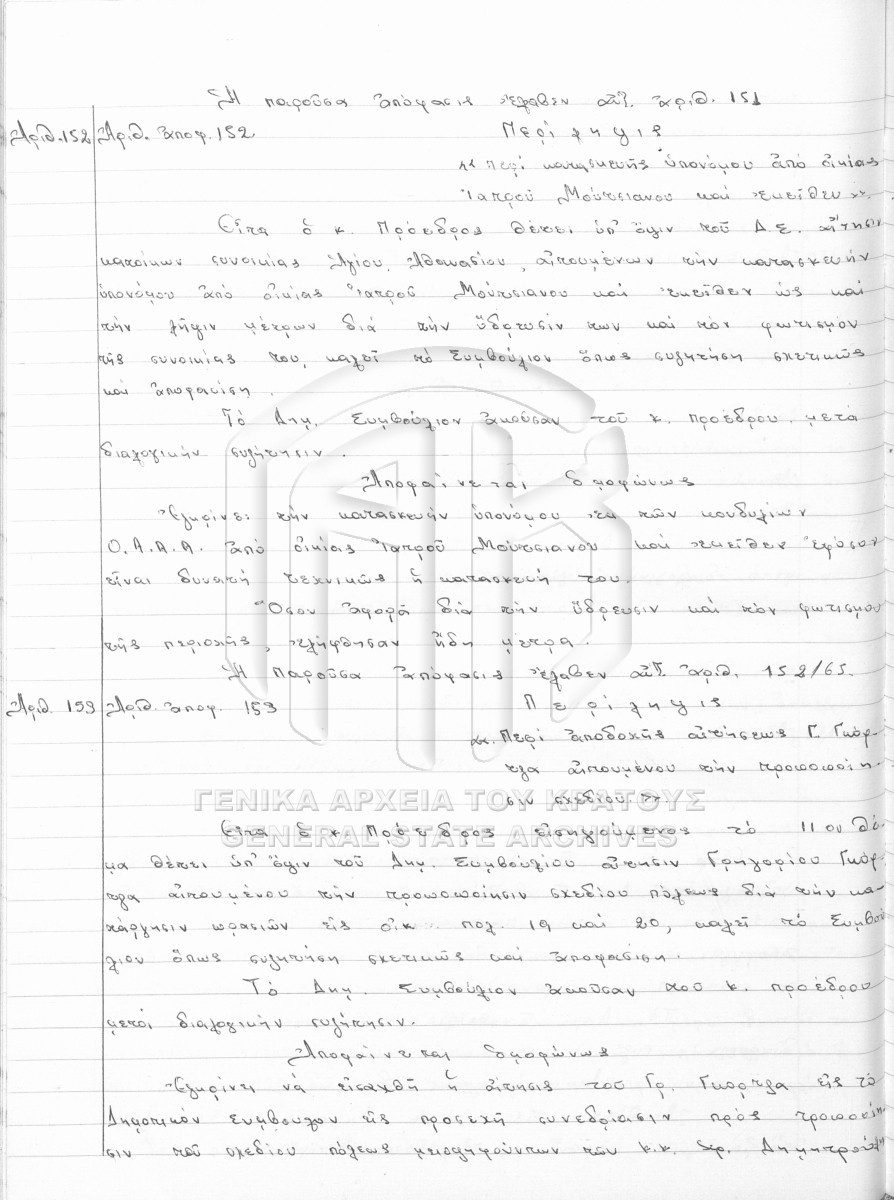 Ἡ παροῦσα ἀπόφασις ἔλαβεν αὔξ. ἀριθ. 151
Ἀριθ. 152 Ἀριθ. ἀποφ. 152 Περίληψις
«Περί κατασκευῆς ὑπονόμου ἀπό οἰκίας
Ἰατροῦ Μούτσιανου καί ἐκεῖθεν».
Εἶτα ὁ κ. Πρόεδρος θέτει ὑπ' ὄψιν τοῦ Δ.Σ. αἴτησιν
κατοίκων συνοικίας Ἁγίου Ἀθανασίου, αἰτουμένων τήν κατασκευήν
ὑπονόμου ἀπό οἰκίας Ἰατροῦ Μούτσιανου καί ἐκεῖθεν ὡς καί
τήν λῆψιν μέτρων διά τήν ὕδρευσίν των καί τόν φωτισμόν
τῆς συνοικίας του, καλεῖ τό Συμβούλιον ὅπως συζητήση σχετικῶς
καί ἀποφασίση.
Τό Δημ. Συμβούλιον ἀκοῦσαν τοῦ κ. προέδρου μετά
διαλογικήν συζήτησιν.
Ἀποφαίνεται ὁμοφώνως
Ἐγκρίνει τήν κατασκευήν ὑπονόμου ἐκ τῶν κονδυλίων
Ο.Α.Α.Α. ἀπό οἰκίας Ἰατροῦ Μούτσιανου καί ἐκεῖθεν ἐφόσον
εἶναι δυνατή τεχνικῶς ἡ κατασκευή του.
Ὅσον ἀφορᾶ διά τήν ὕδρευσιν καί τόν φωτισμόν
τῆς περιοχῆς, ἐλήφθησαν ἤδη μέτρα.
Ἡ παροῦσα ἀπόφασις ἔλαβεν αὔξ. ἀριθ. 152/65.
Ἀριθ. 153 Ἀριθ. ἀποφ. 153 Περίληψις
«Περί ἀποδοχῆς αἰτήσεως Γ. Γκόρ-
τζα αἰτουμένου τήν τροποποίη-
σιν σχεδίου».
ΓΕΝΙΚΑ ΑΡΧΕΙΑ ΤΟΥ ΚΡΑΤΟΥΣ
GENERAL STATE ARCHIVES
Εἶτα ὁ κ. Πρόεδρος εἰσηγούμενος τό 11ον θέ-
μα θέτει ὑπ' ὄψιν τοῦ Δημ. Συμβουλίου αἴτησιν Γρηγορίου Γκόρ-
τζα αἰτουμένου τήν τροποποίησιν σχεδίου πόλεως διά τήν κα-
τάργησιν πρασιῶν εἰς οἰκ. πολ. 19 καί 20, καλεῖ τό Συμβού-
λιον ὅπως συζητήση σχετικῶς καί ἀποφασίση.
Τό Δημ. Συμβούλιον ἀκοῦσαν τοῦ κ. προέδρου
μετά διαλογικήν συζήτησιν.
Ἀποφαίνεται ὁμοφώνως
Ἐγκρίνει νά εἰσαχθῆ ἡ αἴτησις τοῦ Γρ. Γκόρτζα εἰς τό
Δημοτικόν Συμβούλιον εἰς προσεχῆ συνεδρίασιν πρός τροποποίη-
σιν τοῦ σχεδίου πόλεως μειοψηφούντων τῶν κ.κ. Χρ.